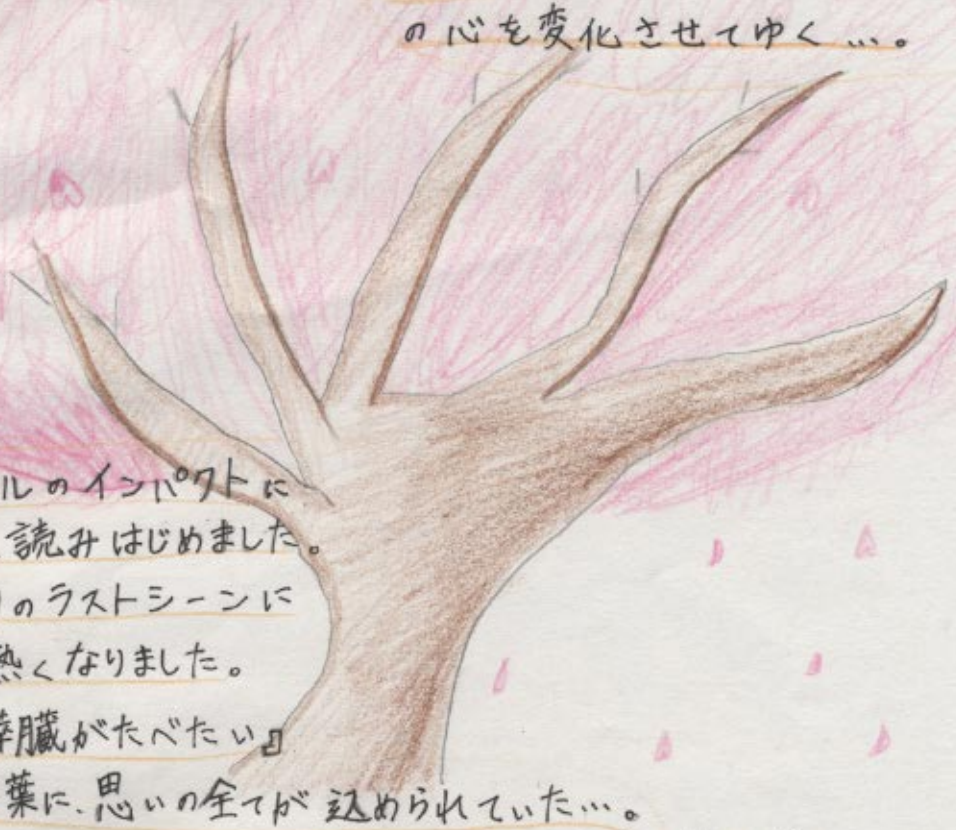 の心を変化させてゆく…。
ルのインパクトに
読みはじめました。
のラストシーンに
熱くなりました。
膵臓がたべたい』
葉に、思いの全てが込められていた…。